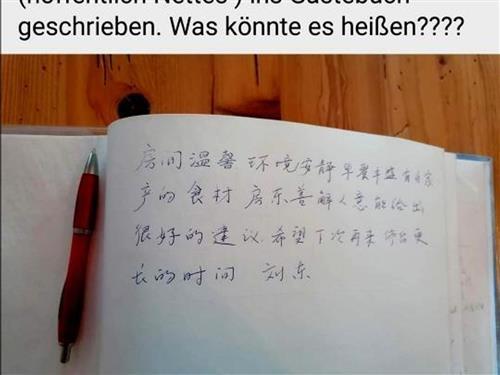 (hoffentlich Nettes ) ins Gästebuch
geschrieben. Was könnte es heißen????
房间温馨 环境安静 早餐丰盛 有自家
产的食材 房东善解人意 能给出
很好的建议. 希望下次再来 停留更
长的时间 刘东